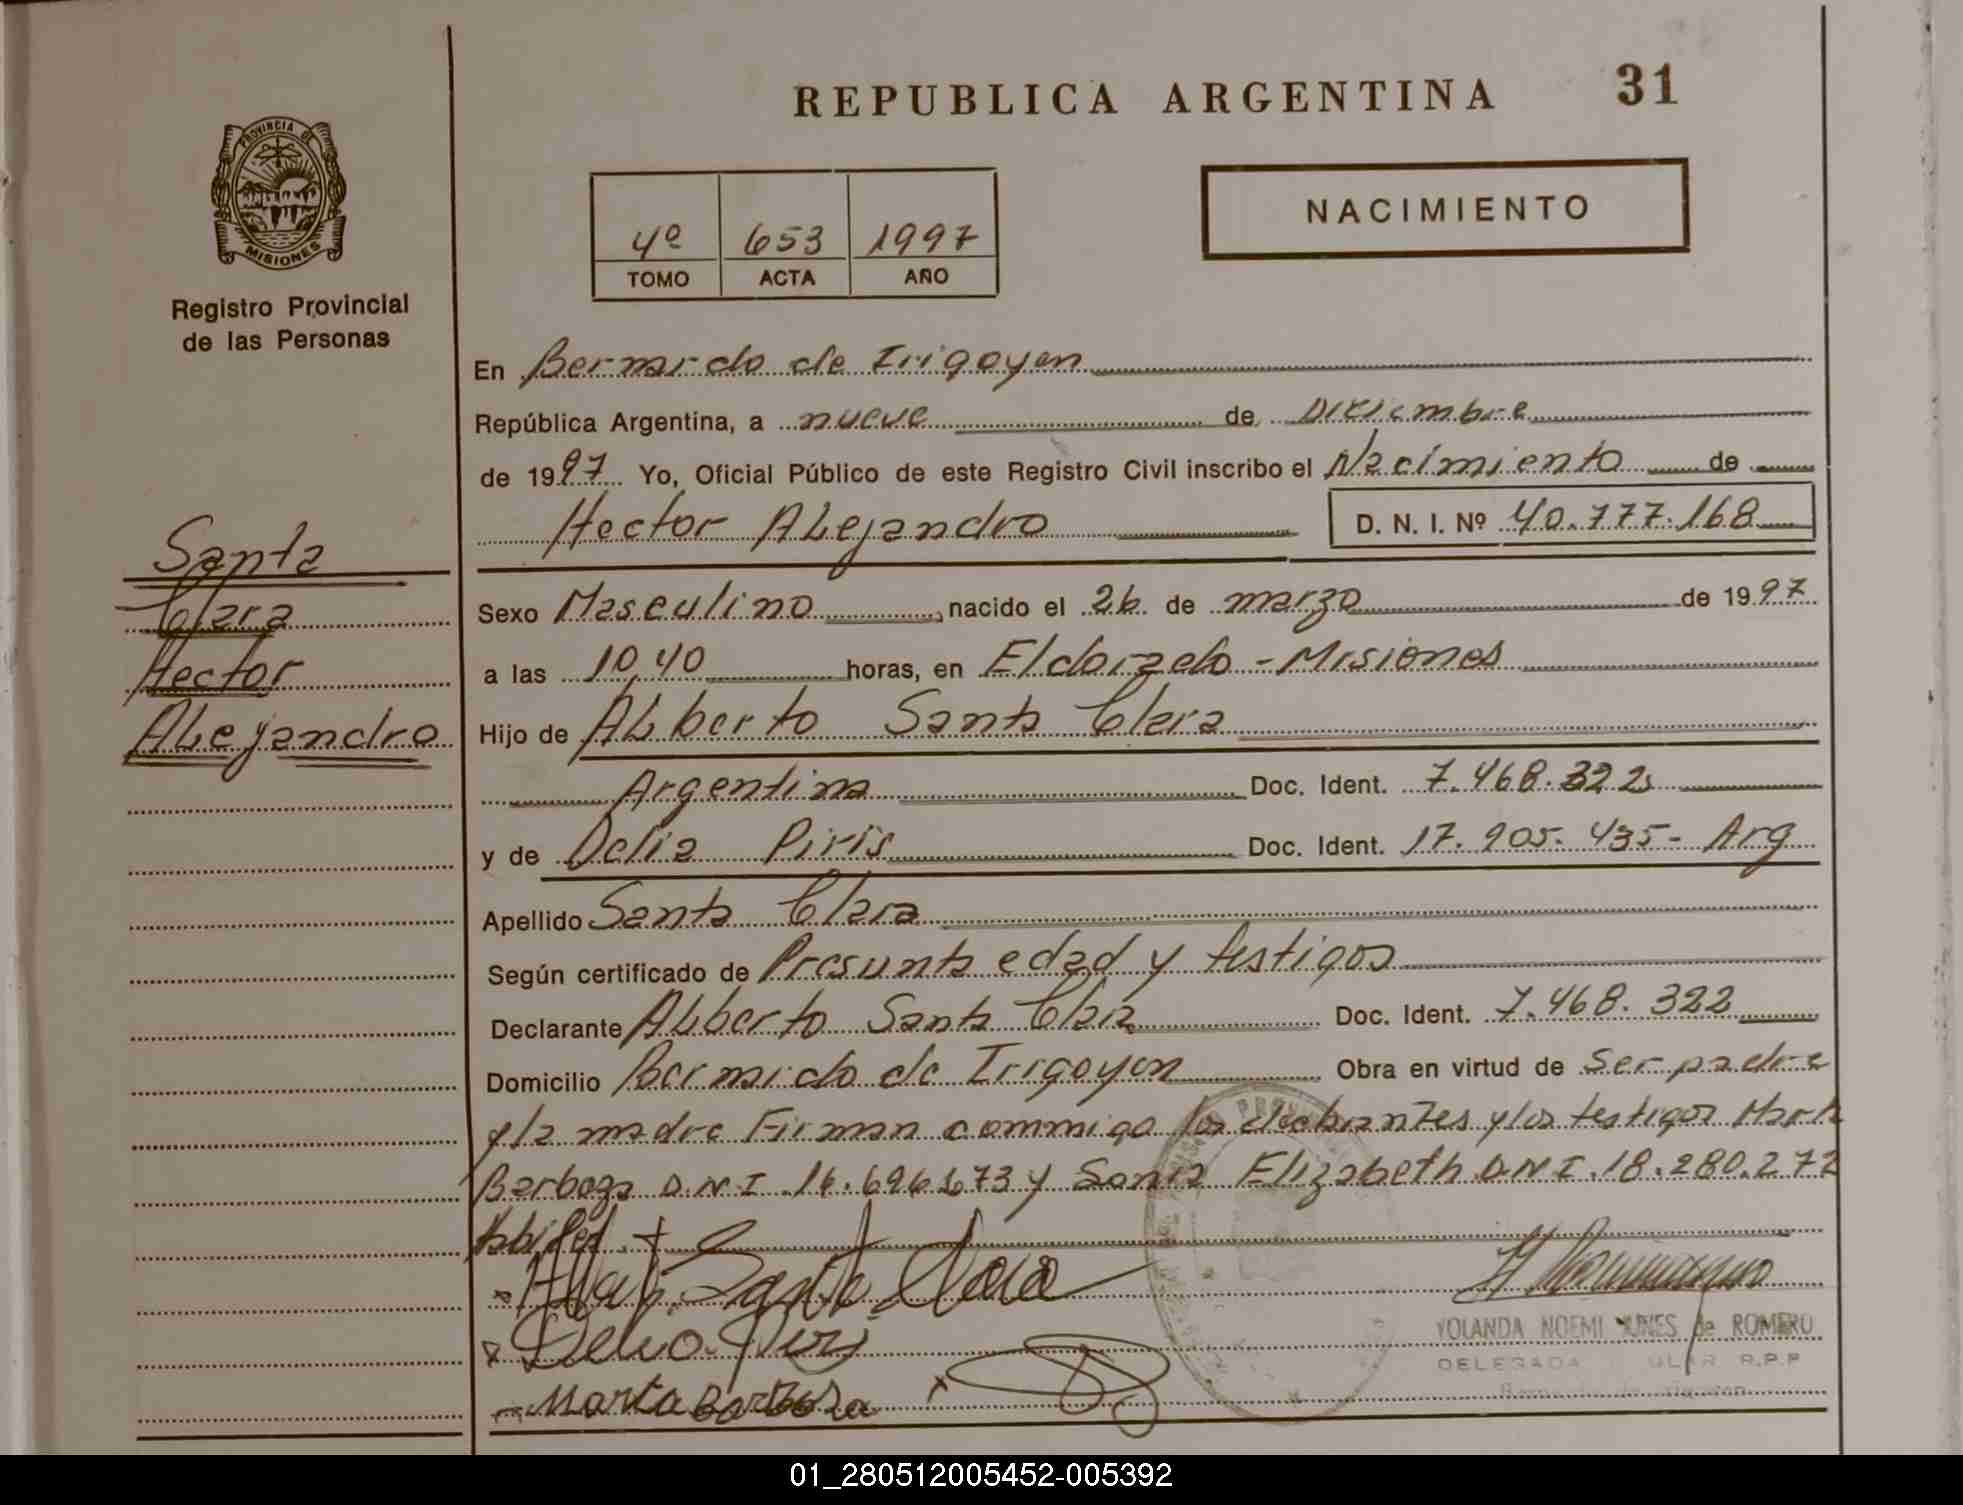 REPUBLICA ARGENTINA 31
PROVINCIA DE
MISIONES
Registro Provincial
de las Personas
4º 653 1997
TOMO ACTA AÑO
NACIMIENTO
En Bernardo de Irigoyen
República Argentina, a nueve de Diciembre
de 1997 Yo, Oficial Público de este Registro Civil inscribo el Nacimiento de
Hector Alejandro D. N. I. Nº 40.777.168
Santa
Clara
Hector
Alejandro
Sexo Masculino, nacido el 26 de marzo de 1997
a las 10,40 horas, en Eldorado - Misiones
Hijo de Aliberto Santa Clara
Argentina Doc. Ident. 7.468.322
y de Delia Piris Doc. Ident. 17.905.435 - Arg
Apellido Santa Clara
Según certificado de Presunta edad y testigos
Declarante Aliberto Santa Clara Doc. Ident. 7.468.322
Domicilio Bernardo de Irigoyen Obra en virtud de ser padre
y la madre Firman conmigo los declarantes y los testigos Marta
Barboza D.N.I. y Sonia Elizabeth D.N.I. 18.280.272
Santa Clara
Marta Barboza
YOLANDA NOEMI YUNES de ROMERO
DELEGADA TITULAR R.P.P
01_280512005452-005392